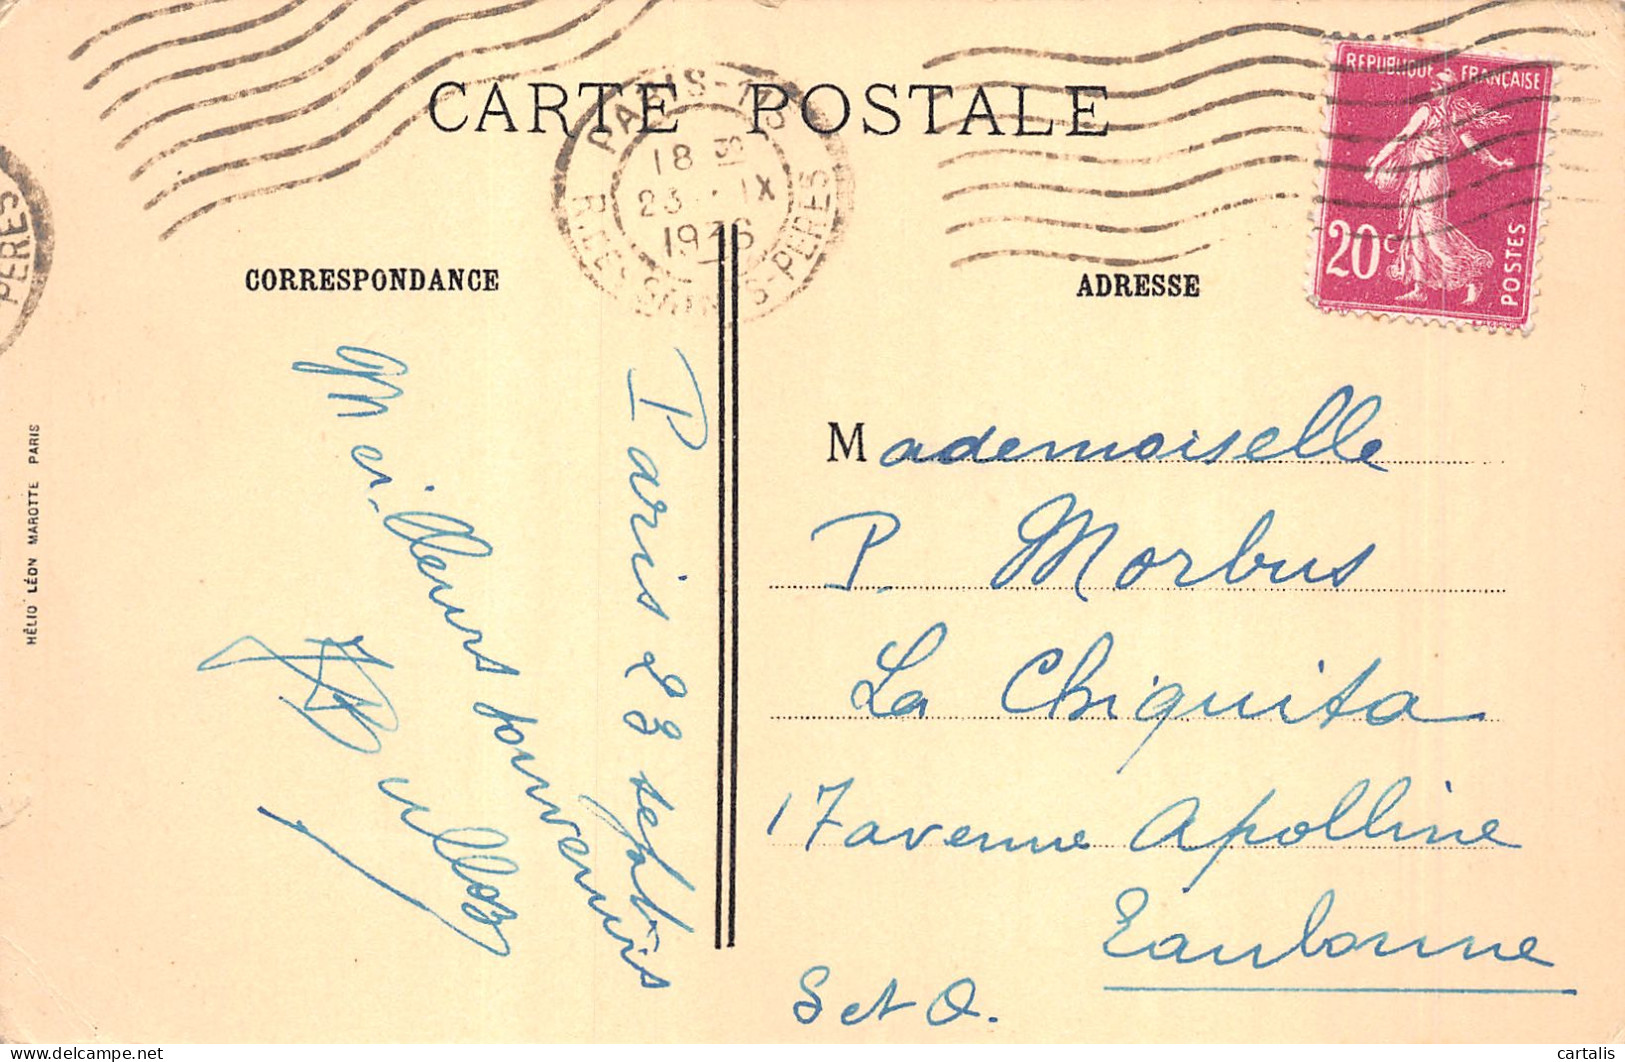 CARTE POSTALE
PARIS-113
18
23 · IX
1936
R. DES SAINTS-PERES
PERES
REPUBLIQUE FRANÇAISE
20c
POSTES
CORRESPONDANCE
ADRESSE
HÉLIO LÉON MAROTTE PARIS
Paris 23 sept
Meilleurs souvenirs
Mademoiselle
P. Morbus
La Chiquita
17 avenue Apolline
Eaubonne
S et O.
cartalis